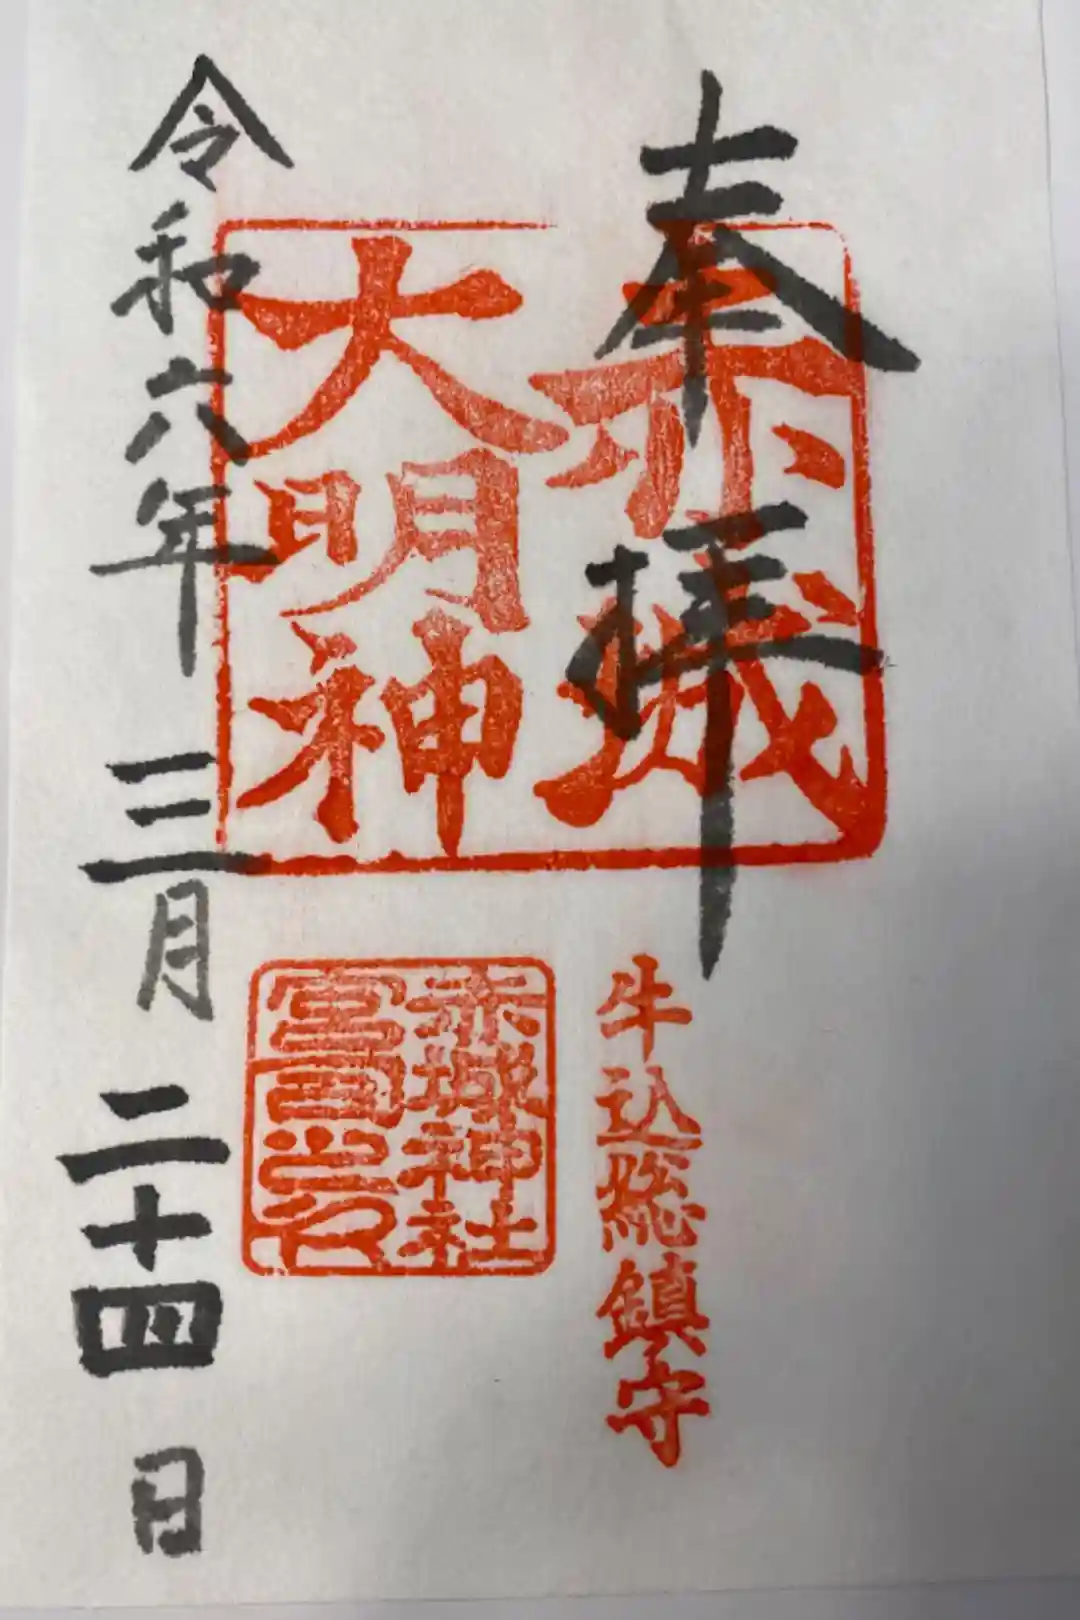 奉拝
赤城
大明神
牛込総鎮守
赤城神社
宮司之印
令和六年三月二十四日